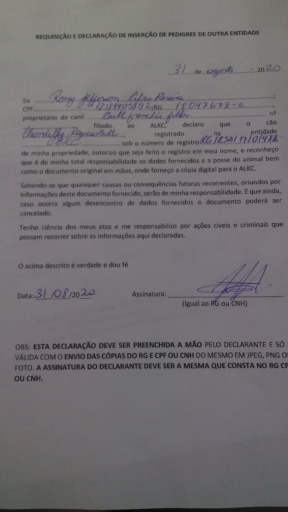 REQUISIÇÃO E DECLARAÇÃO DE INSERÇÃO DE PEDIGREE DE OUTRA ENTIDADE
31 de agosto :2020
Eu
CPF RG
proprietário do canil nº
filiado ao ALKC, declaro que o cão
registrado na entidade
sob o numero de registro
de minha propriedade, autorizo que seja feito o registro em meu nome, e reconheço
que é de minha total responsabilidade os dados fornecidos e a posse do animal bem
como o documento original em mãos, onde forneço a cópia digital para o ALKC.
Sabendo-se que quaisquer causas ou consequências futuras recorrentes, oriundos por
informações deste documento fornecido, serão de minha responsabilidade. E que ainda,
caso ocorra algum desencontro de dados fornecidos o documento poderá ser
cancelado.
Tenho ciência dos meus atos e me responsabilizo por ações cíveis e criminais que
possam recorrer sobre as informações aqui declaradas.
O acima descrito é verdade e dou fé
Data: 31/08/2020 Assinatura:
(Igual ao RG ou CNH)
OBS: ESTA DECLARAÇÃO DEVE SER PREENCHIDA A MÃO PELO DECLARANTE E SÓ
VÁLIDA COM O ENVIO DAS CÓPIAS DO RG E CPF OU CNH DO MESMO EM JPEG, PNG O
FOTO. A ASSINATURA DO DECLARANTE DEVE SER A MESMA QUE CONSTA NO RG CP
OU CNH.